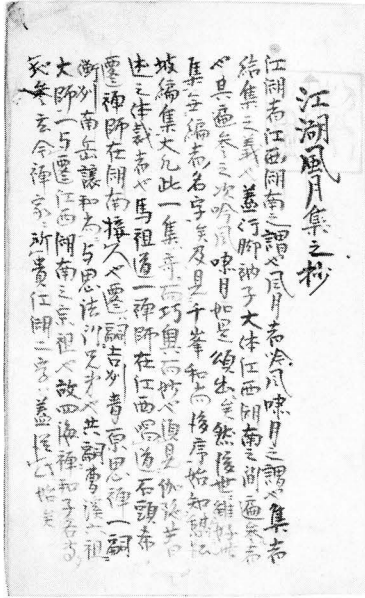 江湖風月集之抄
江湖者江西湖南之謂也風月者吟風嘯月之謂也集者
結集之義也蓋行脚衲子大体江西湖南之間遍参者
也其遍参之次吟風嘯月如是頌出矣然後世雖好此
集無編者名字矣及見千峯和尚後序始知憩松
坡編集大凡此一集奇而巧奥而妙也須見
述之体裁者也馬祖道一禅師在江西唱道石頭希
遷禅師在湖南接人也遷嗣吉州青原思禅一嗣
衡州南岳讓和尚与思法兄弟也共嗣曹渓六祖
大師一与遷江西湖南之宗祖也故四海禅和子各
参玄今禅家所貴江湖二字蓋従此始矣